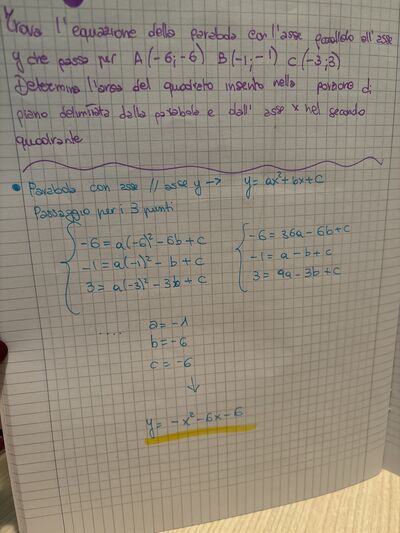 Trova l'equazione della parabola con l'asse parallelo all'asse
y che passa per A(-6;-6) B(-1;-1) C(-3;3)
Determina l'area del quadrato inserito nella porzione di
piano delimitata dalla parabola e dall'asse x nel secondo
quadrante
• Parabola con asse // asse y → y = ax²+bx+c
Passaggio per i 3 punti
-6 = a(-6)² - 6b + c -6 = 36a - 6b + c
-1 = a(-1)² - b + c -1 = a - b + c
3 = a(-3)² - 3b + c 3 = 9a - 3b + c
..... a = -1
b = -6
c = -6
↓
y = -x² - 6x - 6